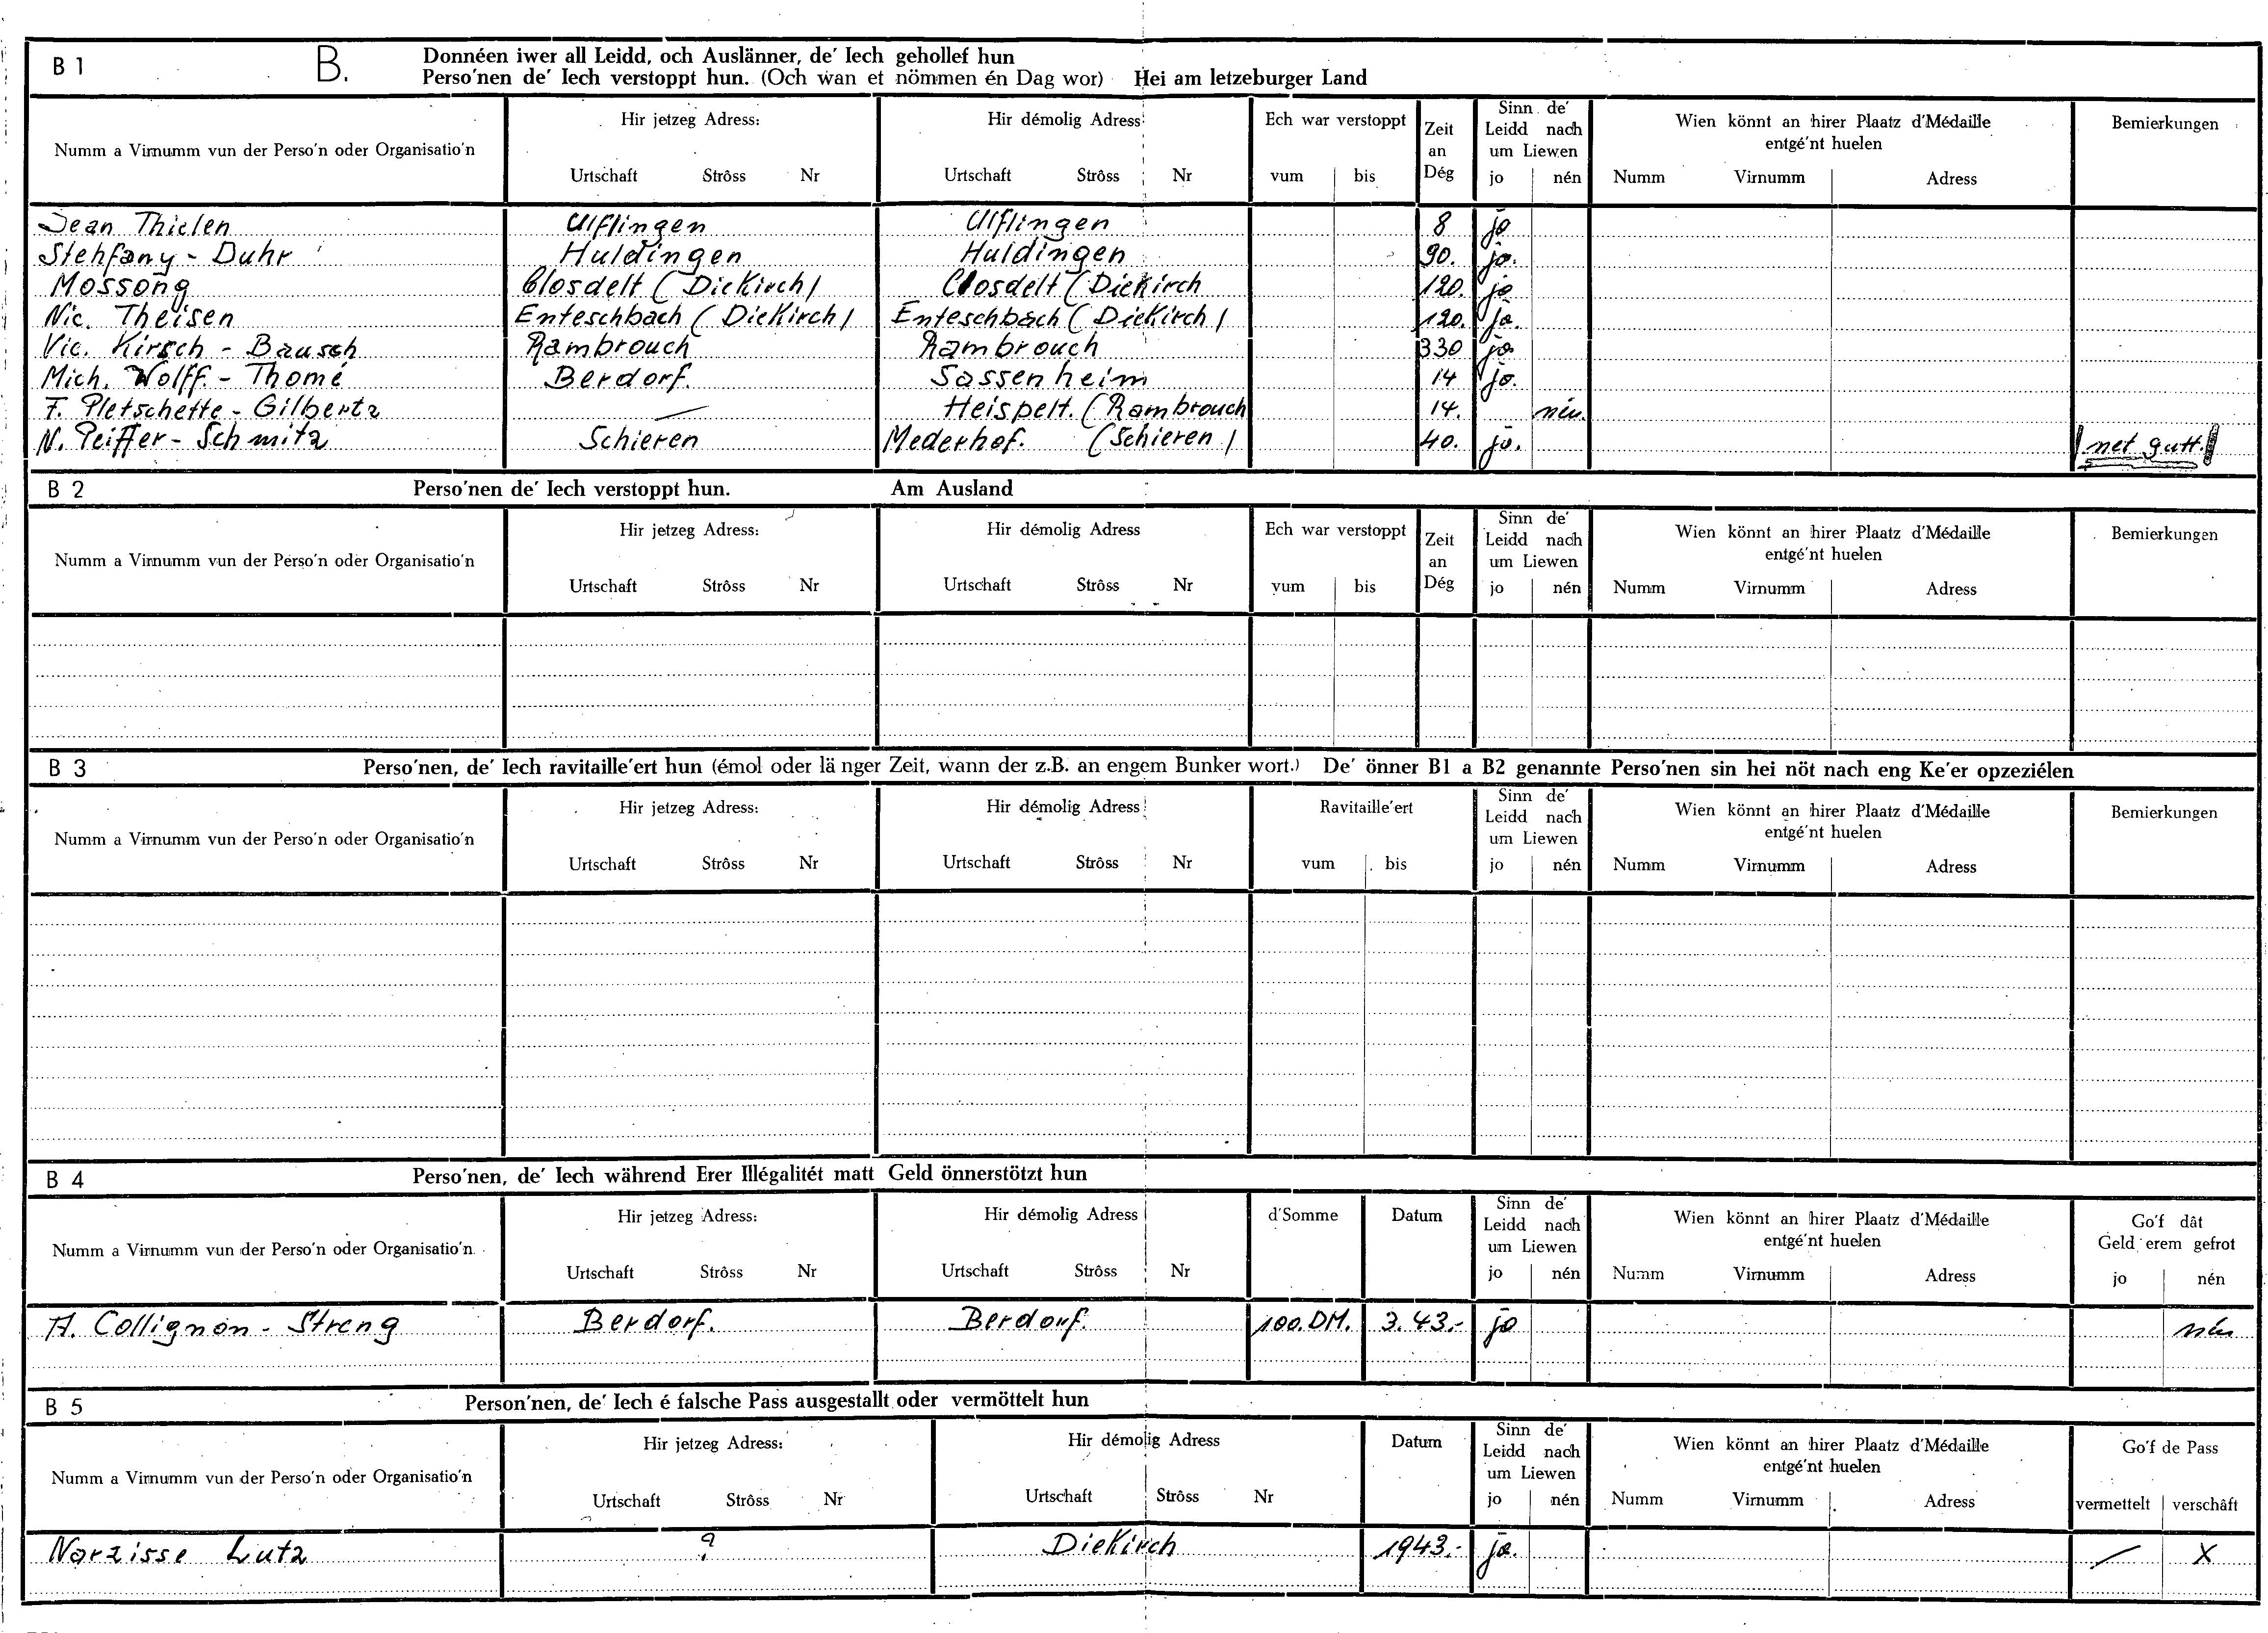 B 1 B. Donnéen iwer all Leidd, och Auslänner, de' Iech gehollef hun
Perso'nen de' Iech verstoppt hun. (Och wan et nömmen én Dag wor) Hei am letzeburger Land
Numm a Virnumm vun der Perso'n oder Organisatio'n
Hir jetzeg Adress:
Urtschaft Strôss Nr
Hir démolig Adress
Urtschaft Strôss Nr
Ech war verstoppt
vum bis
Zeit
an
Dég
Sinn de'
Leidd nach
um Liewen
jo nén
Wien könnt an hirer Plaatz d'Médaille
entgé'nt huelen
Numm Virnumm Adress
Bemierkungen
Jean Thielen Ulflingen Ulflingen 8 jo
Stehfany - Duhr Huldingen Huldingen 90. jo.
Mossong Closdelt (Diekirch) Closdelt (Diekirch 120. jo
Nic. Theisen Enteschbach (Diekirch) Enteschbach (Diekirch) 120. jo.
Vic. Kirsch - Bausch Rambrouch Rambrouch 330 jo
Mich. Wolff. - Thomé Berdorf. Sassenheim 14 jo.
F. Pletschette - Gilbertz — Heispelt. (Rambrouch 14. nén.
N. Peiffer - Schmitz Schieren Mederhof. (Schieren) 40. jo. net gutt.
B 2 Perso'nen de' Iech verstoppt hun. Am Ausland
Numm a Virnumm vun der Perso'n oder Organisatio'n
Hir jetzeg Adress:
Urtschaft Strôss Nr
Hir démolig Adress
Urtschaft Strôss Nr
Ech war verstoppt
vum bis
Zeit
an
Dég
Sinn de'
Leidd nach
um Liewen
jo nén
Wien könnt an hirer Plaatz d'Médaille
entgé'nt huelen
Numm Virnumm Adress
Bemierkungen
B 3 Perso'nen, de' Iech ravitaille'ert hun (émol oder länger Zeit, wann der z.B. an engem Bunker wort.) De' önner B1 a B2 genannte Perso'nen sin hei nöt nach eng Ke'er opzeziélen
Numm a Virnumm vun der Perso'n oder Organisatio'n
Hir jetzeg Adress:
Urtschaft Strôss Nr
Hir démolig Adress
Urtschaft Strôss Nr
Ravitaille'ert
vum bis
Sinn de'
Leidd nach
um Liewen
jo nén
Wien könnt an hirer Plaatz d'Médaille
entgé'nt huelen
Numm Virnumm Adress
Bemierkungen
B 4 Perso'nen, de' Iech während Erer Illégalitét matt Geld önnerstötzt hun
Numm a Virnumm vun der Perso'n oder Organisatio'n
Hir jetzeg Adress:
Urtschaft Strôss Nr
Hir démolig Adress
Urtschaft Strôss Nr
d'Somme
Datum
Sinn de'
Leidd nach
um Liewen
jo nén
Wien könnt an hirer Plaatz d'Médaille
entgé'nt huelen
Numm Virnumm Adress
Go'f dât
Geld erem gefrot
jo nén
A. Collignon - Streng Berdorf. Berdorf. 100. DM. 3.43.- jo nén
B 5 Person'nen, de' Iech é falsche Pass ausgestallt oder vermöttelt hun
Numm a Virnumm vun der Perso'n oder Organisatio'n
Hir jetzeg Adress:
Urtschaft Strôss Nr
Hir démolig Adress
Urtschaft Strôss Nr
Datum
Sinn de'
Leidd nach
um Liewen
jo nén
Wien könnt an hirer Plaatz d'Médaille
entgé'nt huelen
Numm Virnumm Adress
Go'f de Pass
vermettelt verschâft
Narzisse Lutz ? Diekirch 1943.- jo. — X